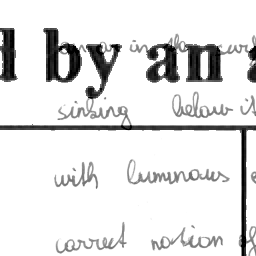 d by an a
in the
sinking below it
with luminous
correct notion of